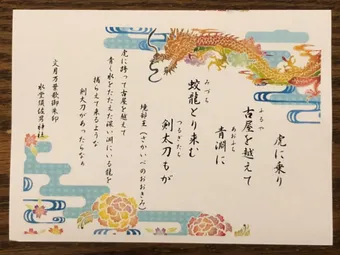 虎に乗り
古屋を越えて
ふるや
青淵に
あおふち
蛟龍とり来む
みづち
剣太刀もが
つるぎたち
境部王(さかいべのおおきみ)
虎に跨って古屋を越えて
青く水をたたえた深い淵にいる龍を
捕らえて来るような
剣太刀があったらなぁ
文月乃葉歌御朱印